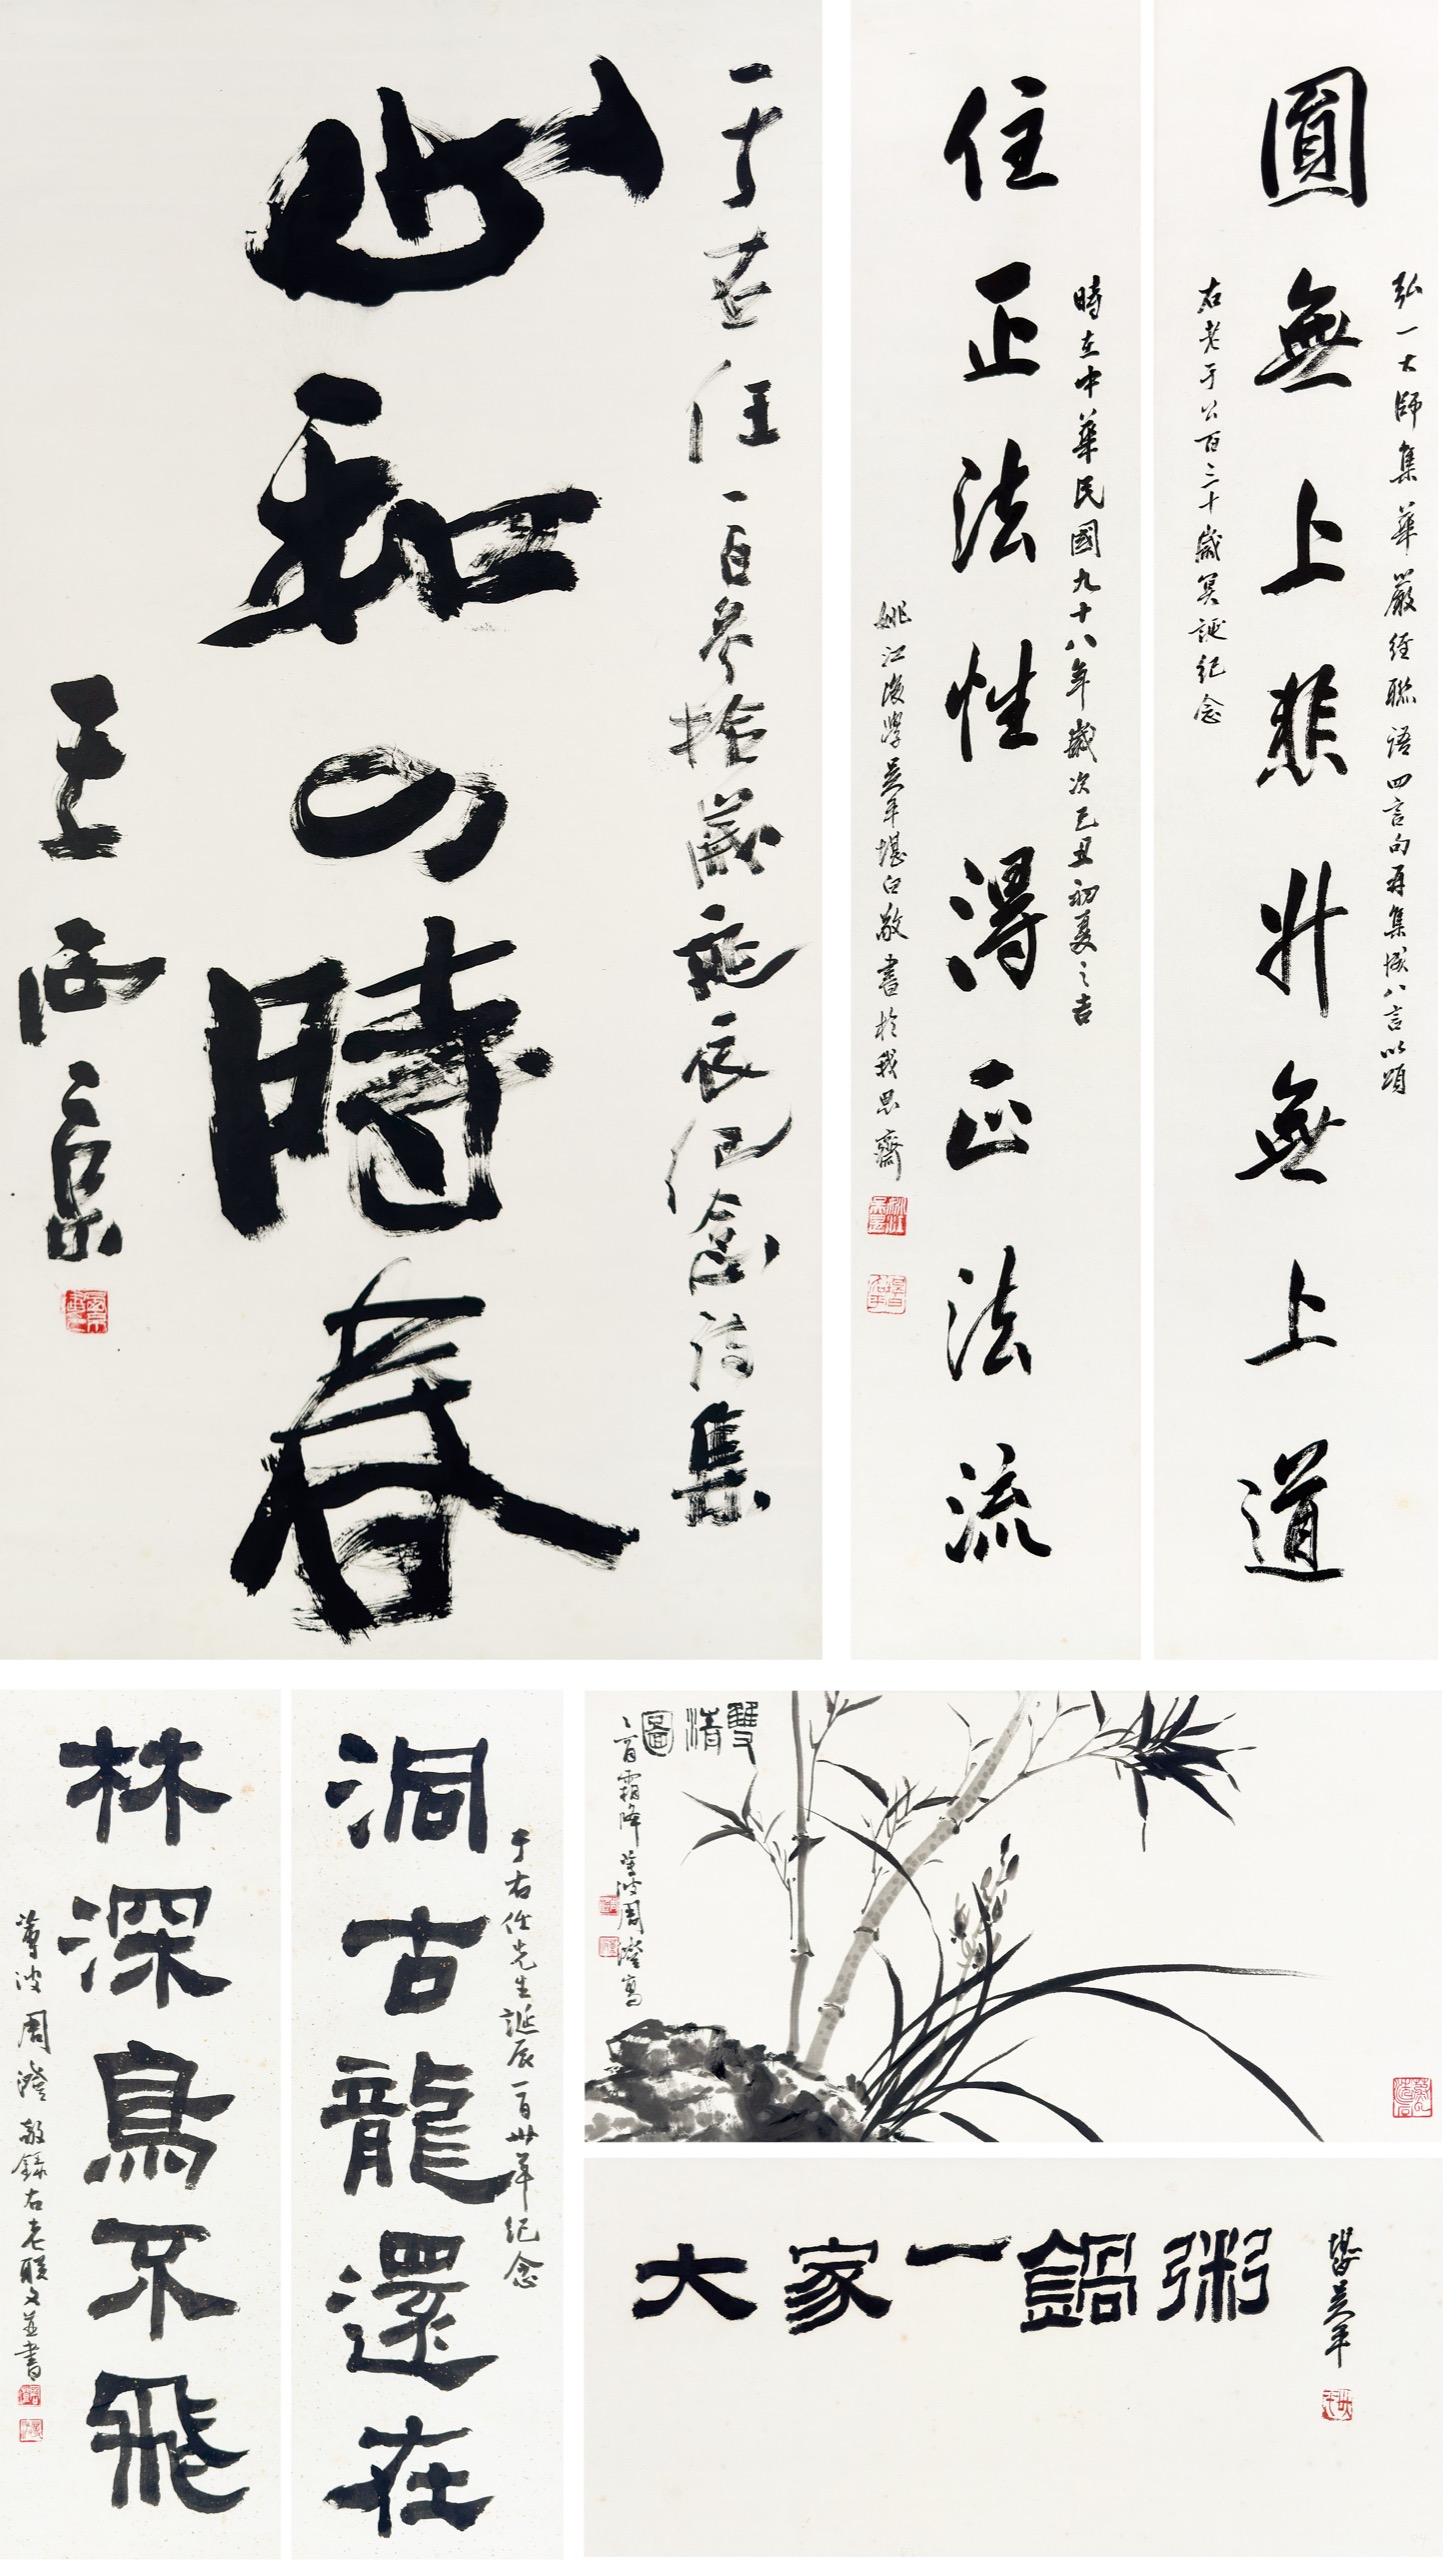 于右任一百參拾歲誕辰紀念詩集
心和四時春
圓無上悲升無上道
弘一大師集華嚴經聯語四言句再集成八言以頌
右老于公百三十歲冥誕紀念
住正法性得正法流
時在中華民國九十八年歲次己丑初夏之吉
姚江後學吳平堪白敬書於我思齋
洞古龍還在
于右任先生誕辰一百卅年紀念
林深鳥不飛
蓴波周澄敬錄右老聯文並書
雙清圖
霜降蓴波周澄寫
大家一鍋粥
堪白吳平